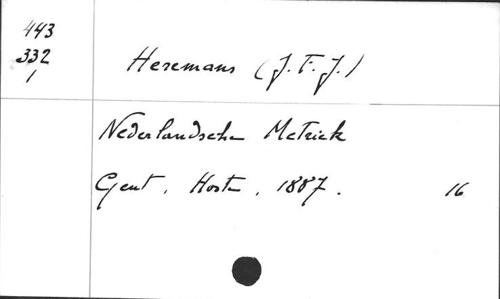 443
332
1
Heremans (J. F. J.)
Nederlandsche Metriek
Gent, Hoste, 1887. 16